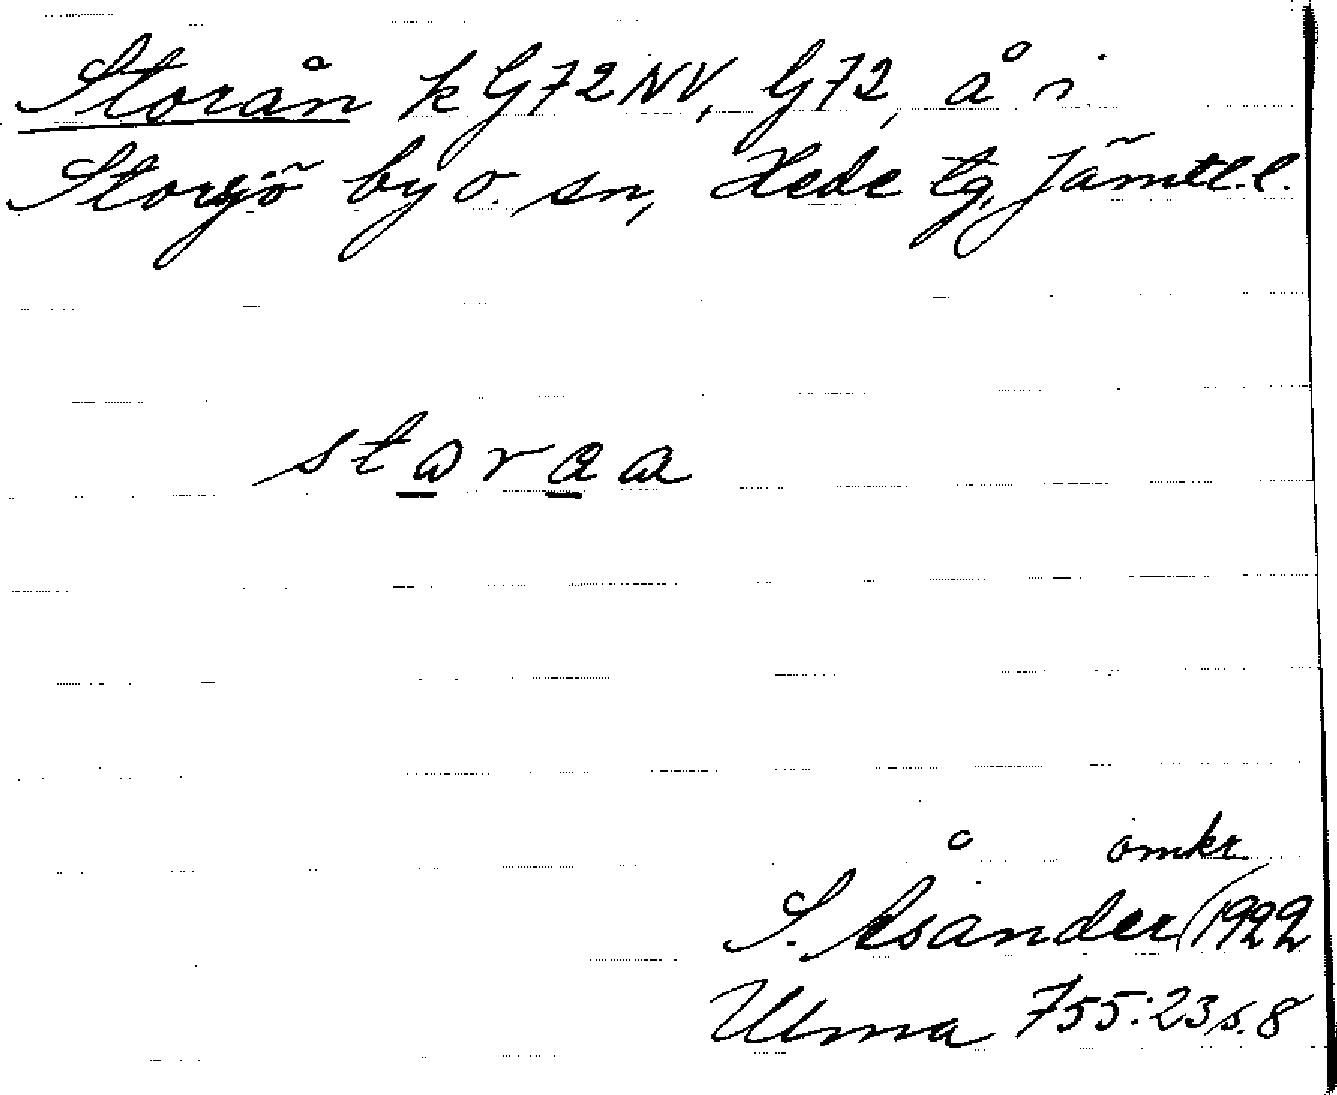 Storån k G72NV, G72, å i
Storsjö by o. sn, Hede tg, Jämtl.l.
staraa
omkr
S. Åsander (1922
Ulma 755:23 s. 8